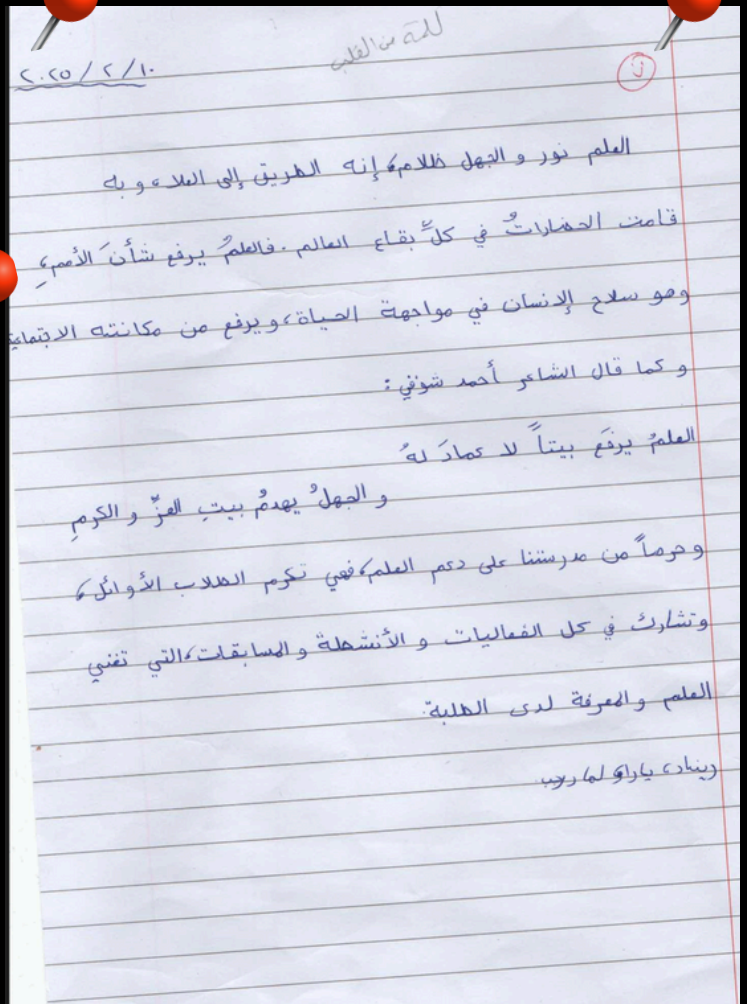 كلمة من القلب
٢٠٢٥/٢/١٠
العلم نور و الجهل ظلام، إنه الطريق إلى العلا، و به
قامت الحضاراتُ في كلِّ بقاع العالم. فالعلمُ يرفع شأنَ الأممِ،
وهو سلاح الإنسان في مواجهة الحياة، ويرفع من مكانته الاجتماعية
و كما قال الشاعر أحمد شوقي:
العلمُ يرفَع بيتاً لا عمادَ لهُ
و الجهلُ يهدمُ بيتِ العزِّ و الكرمِ
وحرصاً من مدرستنا على دعم العلم، فهي تكرم الطلاب الأوائل،
وتشارك في كل الفعاليات و الأنشطة و المسابقات، التي تغني
العلم والمعرفة لدى الطلبة.
ديناد، يارا، لما